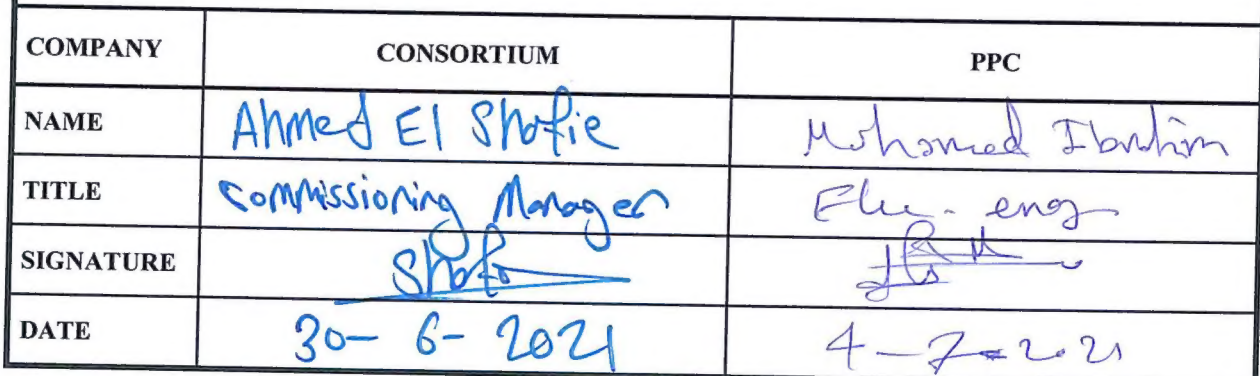 COMPANY CONSORTIUM PPC
NAME Ahmed El Shafie Mohamed Ibrahim
TITLE Commissioning Manager Elec. eng
SIGNATURE Shafie
DATE 30-6-2021 4-7-2021